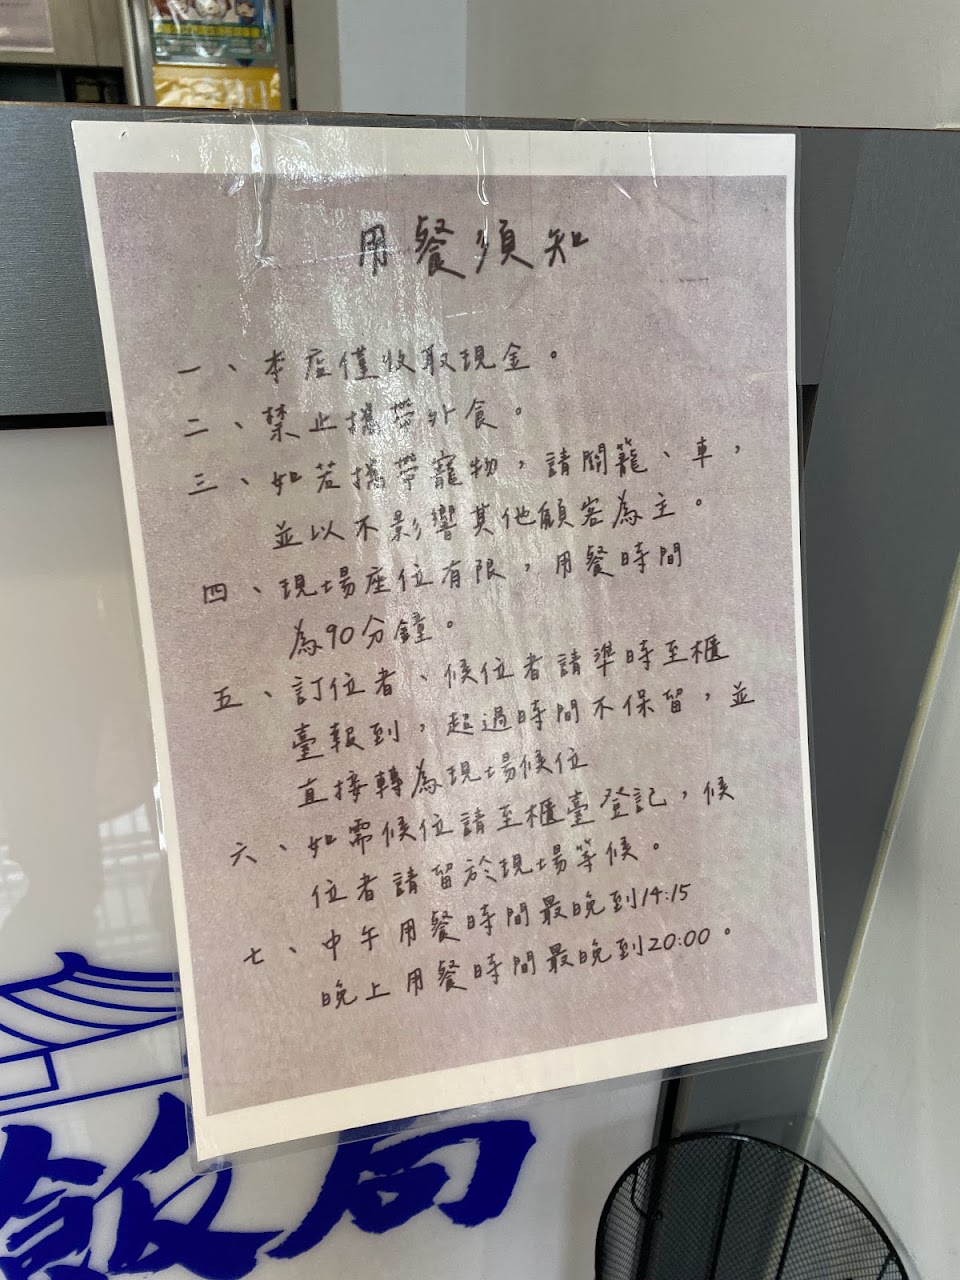 用餐須知
一、本店僅收取現金。
二、禁止攜帶外食。
三、如若攜帶寵物，請關籠、車，
並以不影響其他顧客為主。
四、現場座位有限，用餐時間
為90分鐘。
五、訂位者、候位者請準時至櫃
臺報到，超過時間不保留，並
直接轉為現場候位
六、如需候位請至櫃臺登記，候
位者請留於現場等候。
七、中午用餐時間最晚到14:15
晚上用餐時間最晚到20:00。
飯局